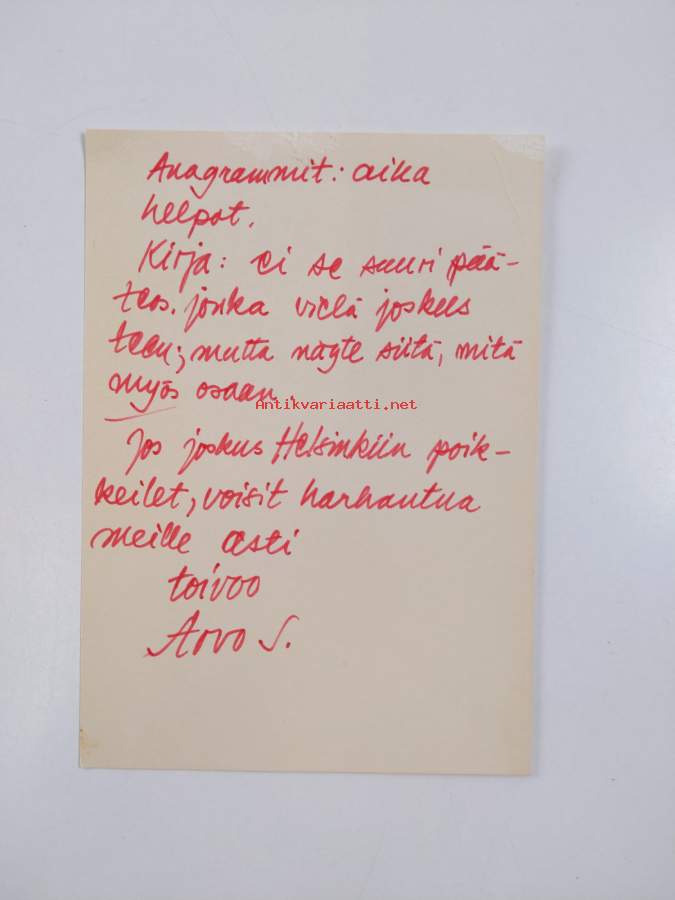 Anagrammit: aika
helpot.
Kirja: ei se suuri pää-
teos. jonka vielä joskus
teen; mutta näyte siitä, mitä
myös osaan.
Antikvariaatti.net
Jos joskus Helsinkiin poik-
keilet, voisit harhautua
meille asti
toivoo
Arvo S.